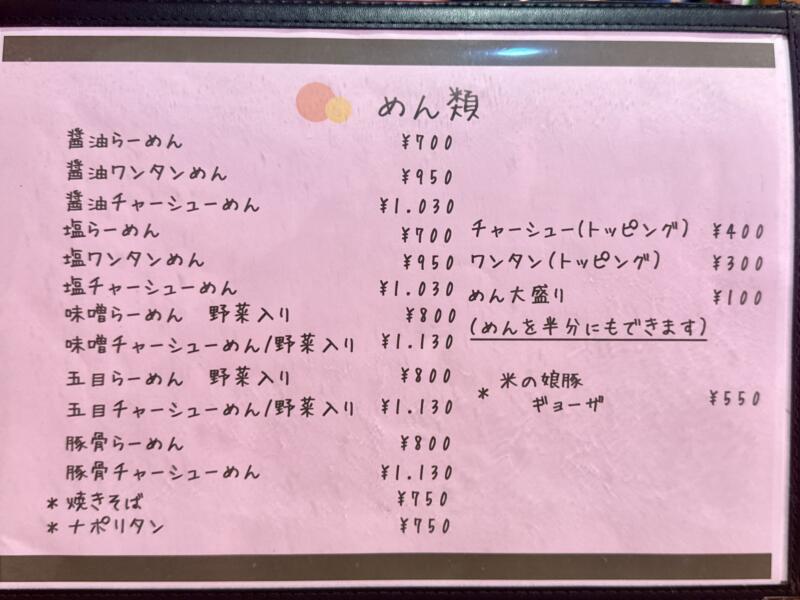 めん類
醤油らーめん ¥700
醤油ワンタンめん ¥950
醤油チャーシューめん ¥1.030
塩らーめん ¥700
塩ワンタンめん ¥950
塩チャーシューめん ¥1.030
味噌らーめん 野菜入り ¥800
味噌チャーシューめん/野菜入り ¥1.130
五目らーめん 野菜入り ¥800
五目チャーシューめん/野菜入り ¥1.130
豚骨らーめん ¥800
豚骨チャーシューめん ¥1.130
*焼きそば ¥750
*ナポリタン ¥750
チャーシュー(トッピング) ¥400
ワンタン(トッピング) ¥300
めん大盛り ¥100
(めんを半分にもできます)
* 米の娘豚
ギョーザ ¥550